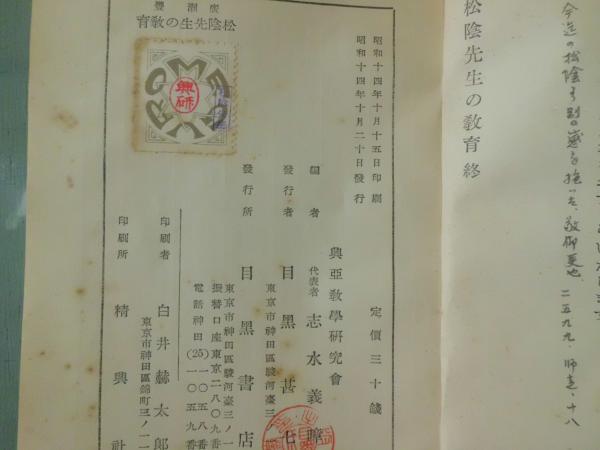 今迄の松陰
二五九九、師走、十八
松陰先生の敎育終
廣瀨 豐
松陰先生の敎育
MEGURO
興研
昭和十四年十月十五日印刷
昭和十四年十月二十日發行
定價三十錢
興亞敎學硏究會
編者 代表者 志水義暲
東京市神田區駿河臺三ノ一
發行者 目黑甚七
發行所 目黑書店
東京市神田區駿河臺三ノ一
振替口座東京二八〇九番
電話神田(25)一〇五八番
一〇五九番
印刷者 白井赫太郎
東京市神田區錦町三ノ一一
印刷所 精興社